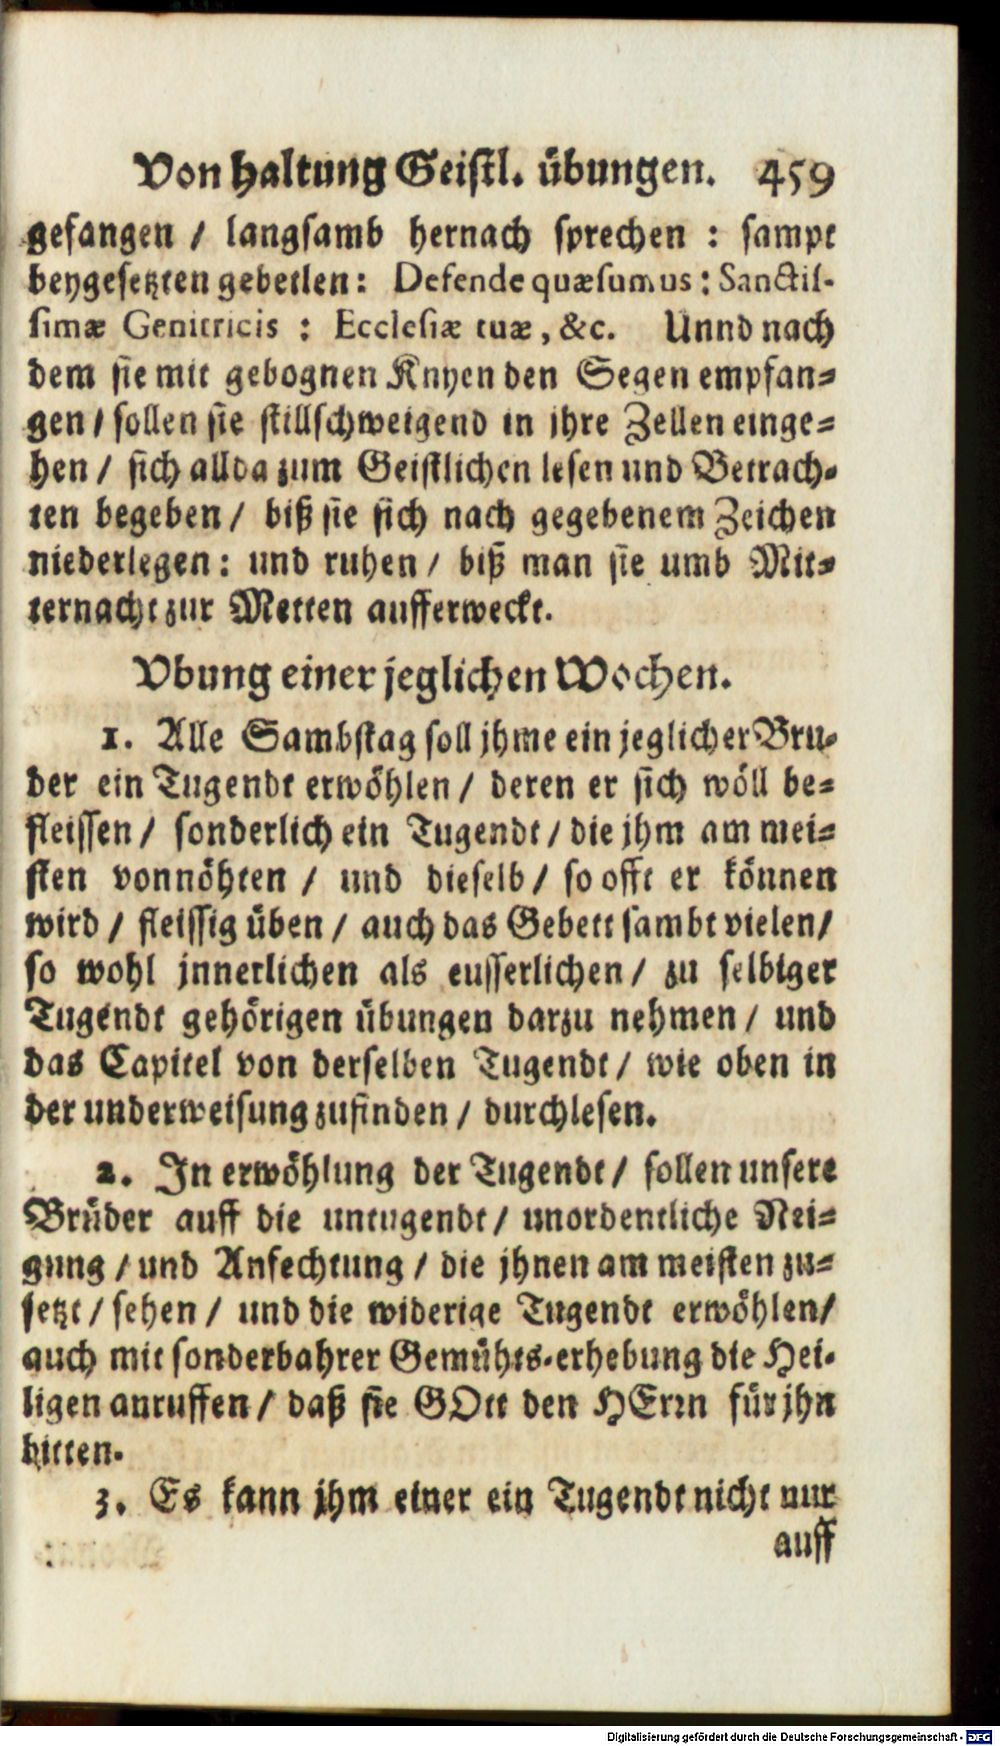 Von haltung Geistl. übungen. 459
gesangen / langsamb hernach sprechen : sampt
beygesetzten gebetlen: Defende quæsumus: Sanctis-
simæ Genitricis : Ecclesiæ tuæ, &c. Unnd nach
dem sie mit gebognen Knyen den Segen empfan-
gen / sollen sie stillschweigend in jhre Zellen einge-
hen / sich allda zum Geistlichen lesen und Betrach-
ten begeben / biß sie sich nach gegebenem Zeichen
niederlegen: und ruhen / biß man sie umb Mit-
ternacht zur Metten aufferweckt.
Vbung einer jeglichen Wochen.
1. Alle Sambstag soll jhme ein jeglicher Bru-
der ein Tugendt erwöhlen / deren er sich wöll be-
fleissen / sonderlich ein Tugendt / die jhm am mei-
sten vonnöhten / und dieselb / so offt er können
wird / fleissig üben / auch das Gebett sambt vielen /
so wohl jnnerlichen als eusserlichen / zu selbiger
Tugendt gehörigen übungen darzu nehmen / und
das Capitel von derselben Tugendt / wie oben in
der underweisung zufinden / durchlesen.
2. In erwöhlung der Tugendt / sollen unsere
Brüder auff die untugendt / unordentliche Nei-
gung / und Anfechtung / die jhnen am meisten zu-
setzt / sehen / und die widerige Tugendt erwöhlen /
auch mit sonderbahrer Gemühts-erhebung die Hei-
ligen anruffen / daß sie GOtt den HErrn für jhn
bitten.
3. Es kann jhm einer ein Tugendt nicht nur
auff
Digitalisierung gefördert durch die Deutsche Forschungsgemeinschaft - DFG